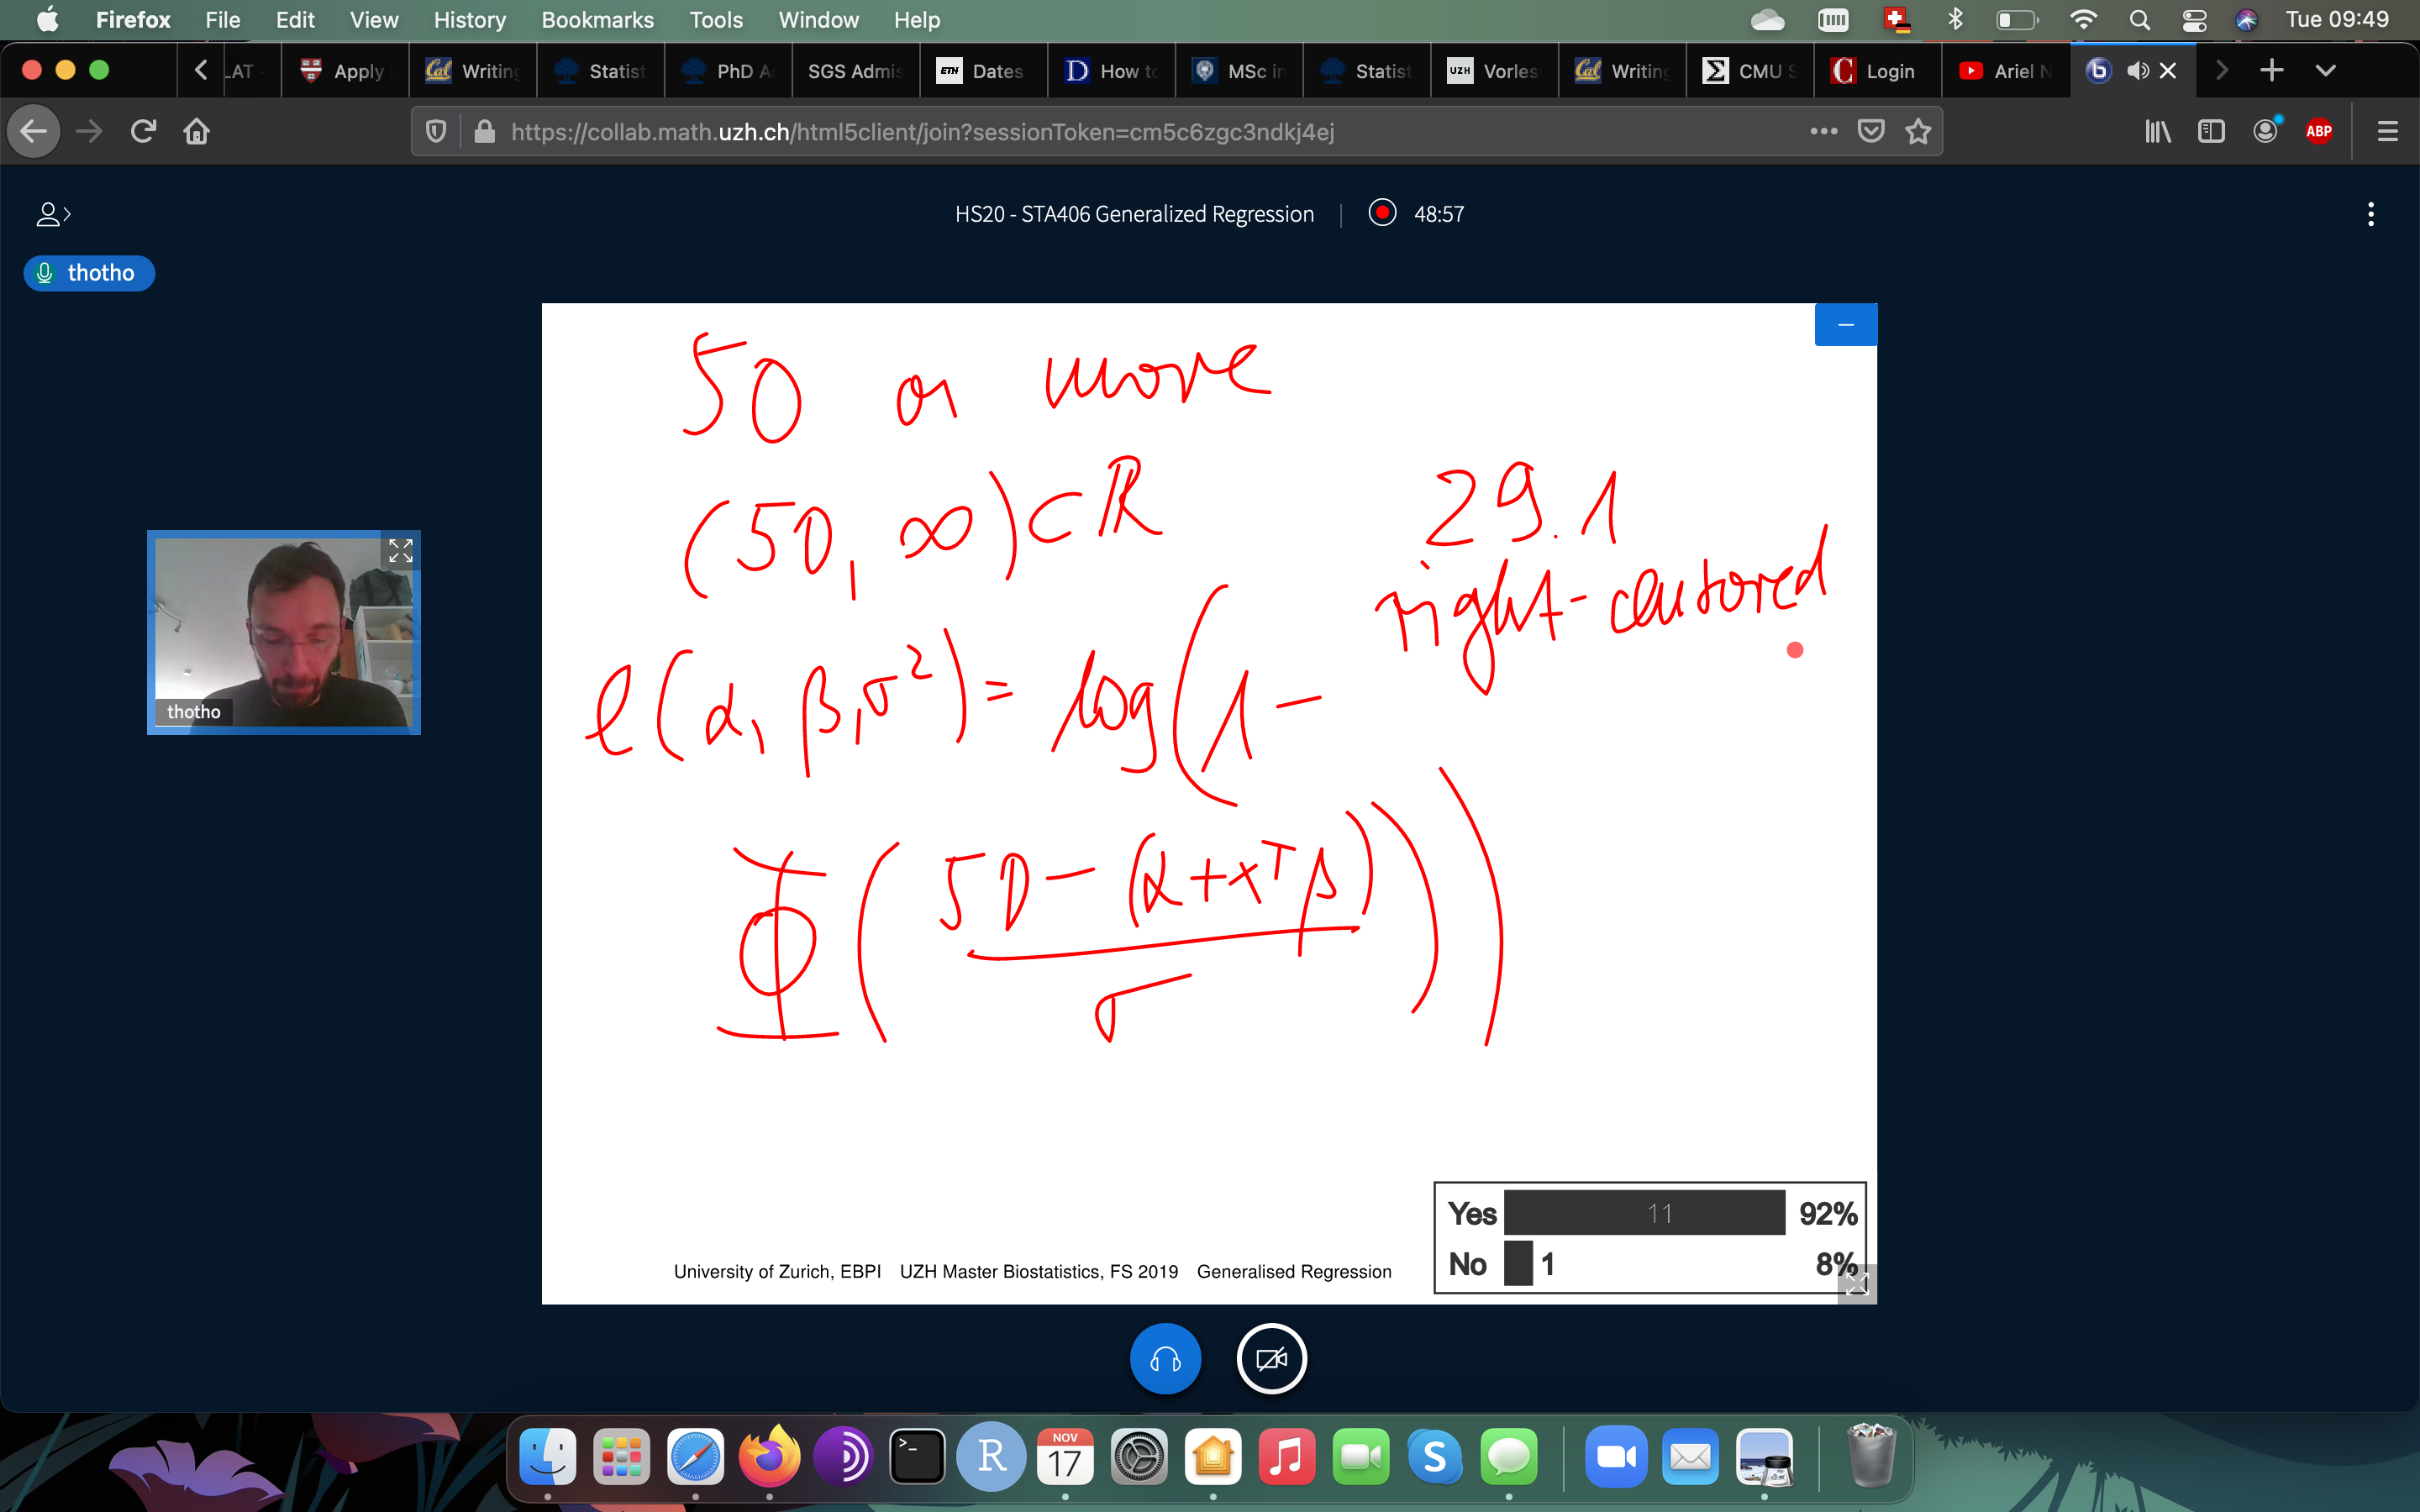 Firefox File Edit View History Bookmarks Tools Window Help Tue 09:49
LAT Apply Cal Writing Statist PhD A SGS Admis ETH Dates D How to MSc in Statist UZH Vorles Cal Writing Σ CMU S C Login Ariel N b
https://collab.math.uzh.ch/html5client/join?sessionToken=cm5c6zgc3ndkj4ej ABP
HS20 - STA406 Generalized Regression | 48:57
thotho
50 or more
(50, ∞) ⊂ ℝ
29.1
right-censored
ℓ(α, β, σ²) = log(1 −
Φ( 50 − (α + xᵀβ)
σ ))
thotho
Yes 11 92%
No 1 8%
University of Zurich, EBPI UZH Master Biostatistics, FS 2019 Generalised Regression
>_ R NOV 17 S